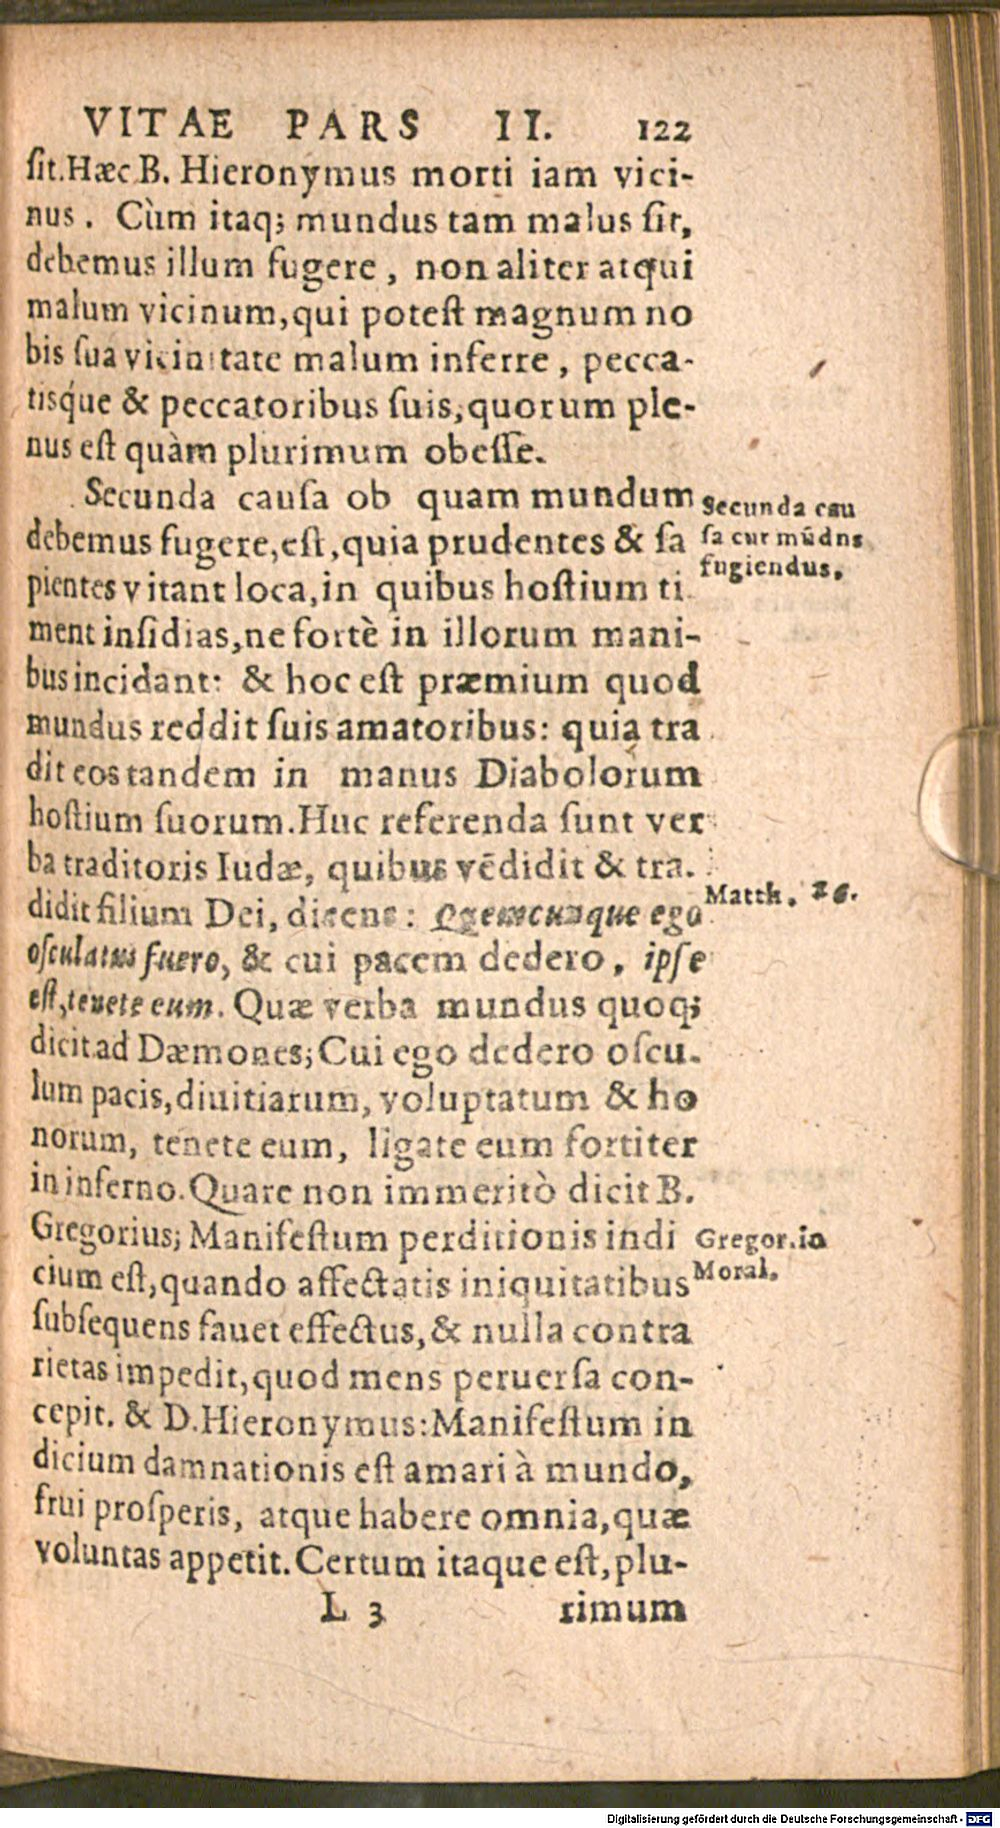 VITAE PARS II. 122
sit. Hæc B. Hieronymus morti iam vici-
nus. Cùm itaq; mundus tam malus sit,
debemus illum fugere, non aliter atqui
malum vicinum, qui potest magnum no
bis sua vicinitate malum inferre, pecca-
tisq́ue & peccatoribus suis, quorum ple-
nus est quàm plurimum obesse.
Secunda causa ob quam mundum
debemus fugere, est, quia prudentes & sa
pientes vitant loca, in quibus hostium ti
ment insidias, ne fortè in illorum mani-
bus incidant: & hoc est præmium quod
mundus reddit suis amatoribus: quia tra
dit eos tandem in manus Diabolorum
hostium suorum. Huc referenda sunt ver
ba traditoris Iudæ, quibus vẽdidit & tra-
didit filium Dei, dicens: Quemcunque ego
osculatus fuero, & cui pacem dedero, ipse
est, tenete eum. Quæ verba mundus quoq;
dicit ad Dæmones; Cui ego dedero oscu-
lum pacis, diuitiarum, voluptatum & ho
norum, tenete eum, ligate eum fortiter
in inferno. Quare non immeritò dicit B.
Gregorius; Manifestum perditionis indi
cium est, quando affectatis iniquitatibus
subsequens fauet effectus, & nulla contra
rietas impedit, quod mens peruersa con-
cepit. & D. Hieronymus: Manifestum in
dicium damnationis est amari à mundo,
frui prosperis, atque habere omnia, quæ
voluntas appetit. Certum itaque est, plu-
L 3 rimum
Secunda cau
sa cur mũdns
fugiendus.
Matth. 26.
Gregor. in
Moral.
Digitalisierung gefördert durch die Deutsche Forschungsgemeinschaft - DFG